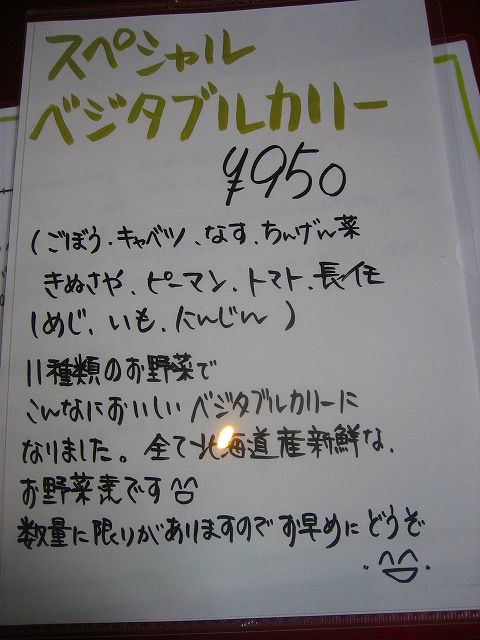 スペシャル
ベジタブルカリー
¥950
(ごぼう、キャベツ、なす、ちんげん菜
きぬさや、ピーマン、トマト、長イモ
しめじ、いも、にんじん)
11種類のお野菜で
こんなにおいしいベジタブルカリーに
なりました。全て北海道産新鮮な、
お野菜達です
数量に限りがありますのでお早めにどうぞ